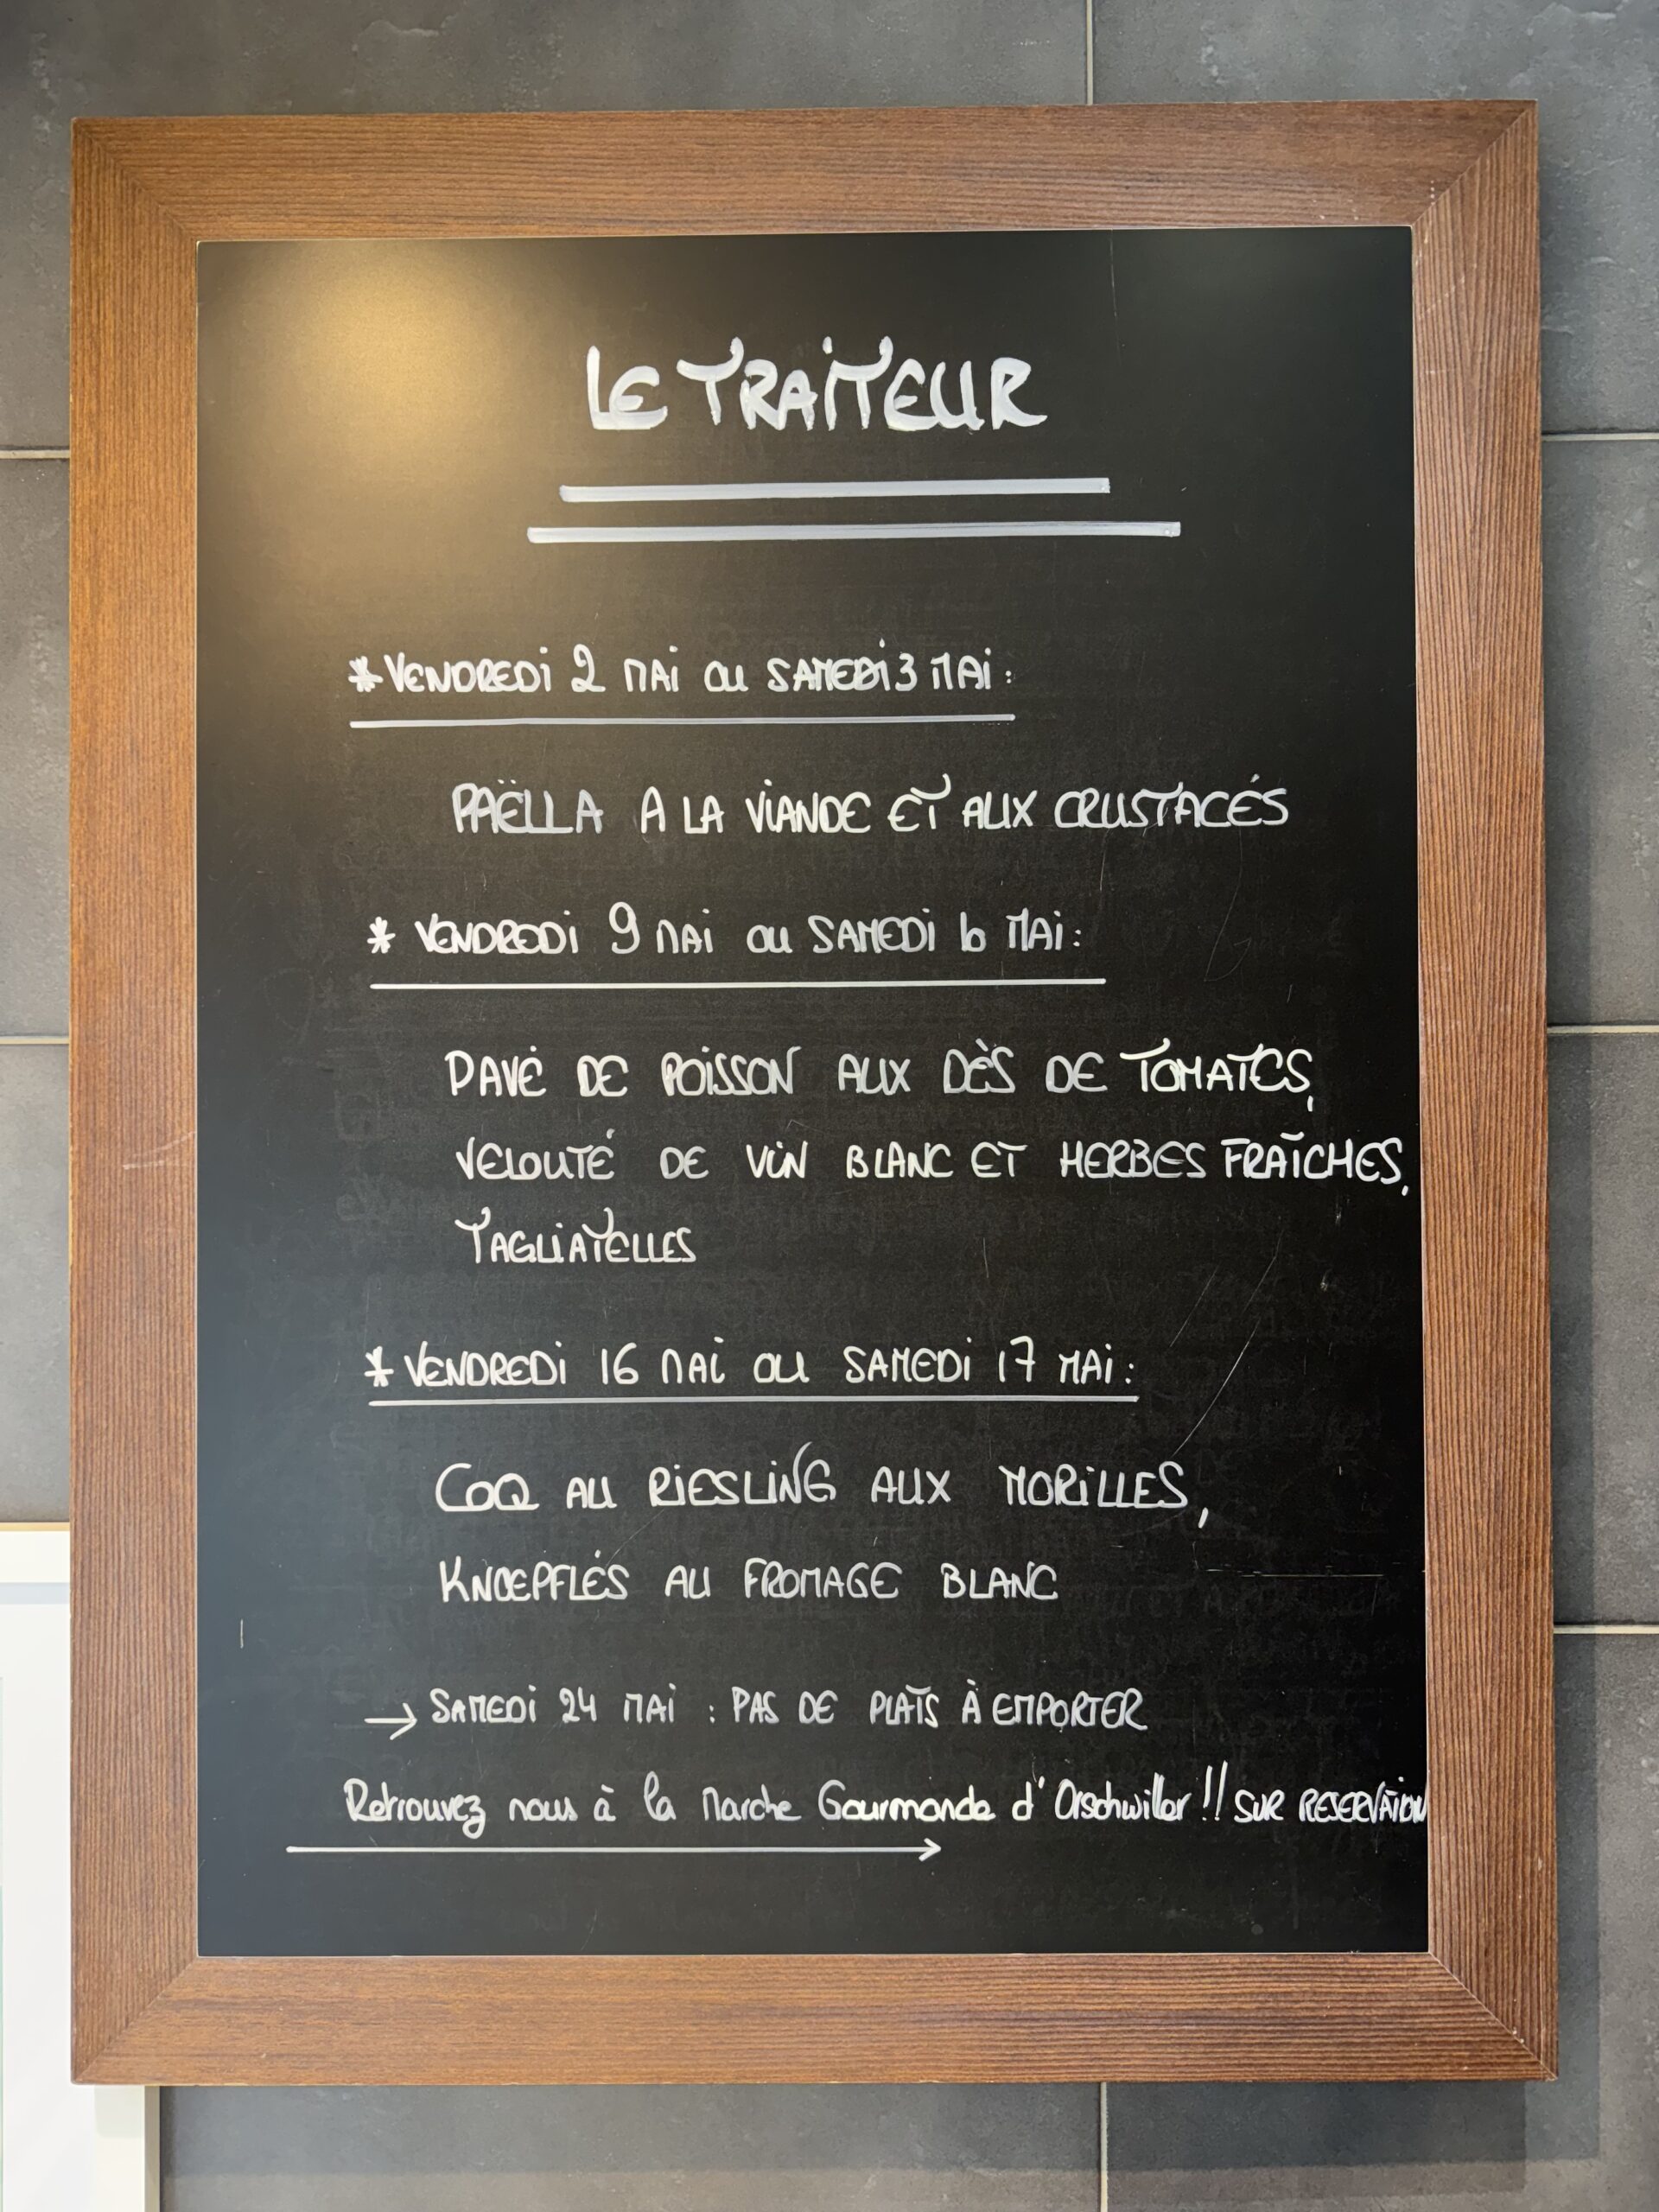 LE TRAITEUR
* VENDREDI 2 MAI OU SAMEDI 3 MAI :
PAËLLA A LA VIANDE ET AUX CRUSTACÉS
* VENDREDI 9 MAI OU SAMEDI 10 MAI :
PAVÉ DE POISSON AUX DÈS DE TOMATES,
VELOUTÉ DE VIN BLANC ET HERBES FRAÎCHES,
TAGLIATELLES
* VENDREDI 16 MAI OU SAMEDI 17 MAI :
COQ AU RIESLING AUX MORILLES,
KNOEPFLÉS AU FROMAGE BLANC
→ SAMEDI 24 MAI : PAS DE PLATS À EMPORTER
Retrouvez nous à la Marche Gourmande d'Orschwiller !! SUR RESERVATION